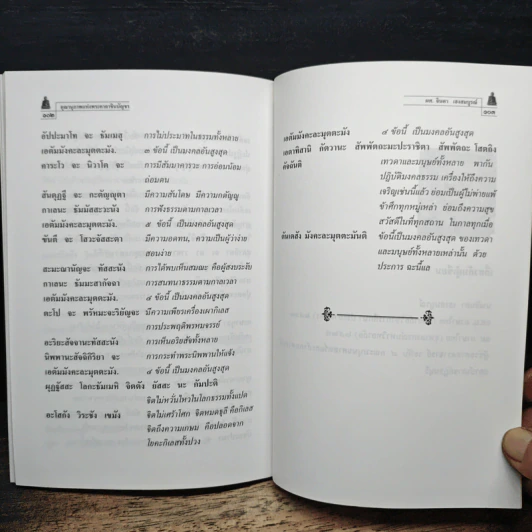 คุณานุภาพแห่งพระคาถาชินบัญชร
๑๐๒
อัปปะมาโท จะ ธัมเมสุ การไม่ประมาทในธรรมทั้งหลาย
เอตัมมังคะละมุตตะมัง. ๓ ข้อนี้ เป็นมงคลอันสูงสุด
คาระโว จะ นิวาโต จะ การมีสัมมาคารวะ การอ่อนน้อม
ถ่อมตน
สันตุฏฐี จะ กะตัญญุตา ความสันโดษ มีความกตัญญู
กาเลนะ ธัมมัสสะวะนัง การฟังธรรมตามกาลเวลา
เอตัมมังคะละมุตตะมัง. ๕ ข้อนี้ เป็นมงคลอันสูงสุด
ขันตี จะ โสวะจัสสะตา ความอดทน, ความเป็นผู้ว่าง่าย
สอนง่าย
สะมะณานัญจะ ทัสสะนัง การได้พบเห็นสมณะ คือผู้สงบระงับ
กาเลนะ ธัมมะสากัจฉา การสนทนาธรรมตามกาลเวลา
เอตัมมังคะละมุตตะมัง. ๔ ข้อนี้ เป็นมงคลอันสูงสุด
ตะโป จะ พรัหมะจะริยัญจะ มีความเพียรเครื่องเผากิเลส
การประพฤติพรหมจรรย์
อะริยะสัจจานะทัสสะนัง การเห็นอริยสัจทั้งหลาย
นิพพานะสัจฉิกิริยา จะ การกระทำพระนิพพานให้แจ้ง
เอตัมมังคะละมุตตะมัง. ๔ ข้อนี้ เป็นมงคลอันสูงสุด
ผุฏฐัสสะ โลกะธัมเมหิ จิตตัง ยัสสะ นะ กัมปะติ
จิตไม่หวั่นไหวในโลกธรรมทั้งแปด
อะโสกัง วิระชัง เขมัง จิตไม่เศร้าโศก จิตหมดธุลี คือกิเลส
จิตถึงความเกษม คือปลอดจาก
โยคะกิเลสทั้งปวง
๑๐๓
เอตัมมังคะละมุตตะมัง ๔ ข้อนี้ เป็นมงคลอันสูงสุด
เอตาทิสานิ กัตวานะ สัพพัตถะมะปะราชิตา สัพพัตถะ โสตถิง
คัจฉันติ เทวดาและมนุษย์ทั้งหลาย พากัน
ปฏิบัติมงคลธรรม เครื่องให้ถึงความ
เจริญเช่นนี้แล้ว ย่อมเป็นผู้ไม่พ่ายแพ้
ข้าศึกทุกหมู่เหล่า ย่อมถึงความสุข
สวัสดีในที่ทุกสถาน ในกาลทุกเมื่อ
ตันเตสัง มังคะละมุตตะมันติ ข้อนี้เป็นมงคลอันสูงสุด ของเทวดา
และมนุษย์ทั้งหลายเหล่านั้น ด้วย
ประการ ฉะนี้แล